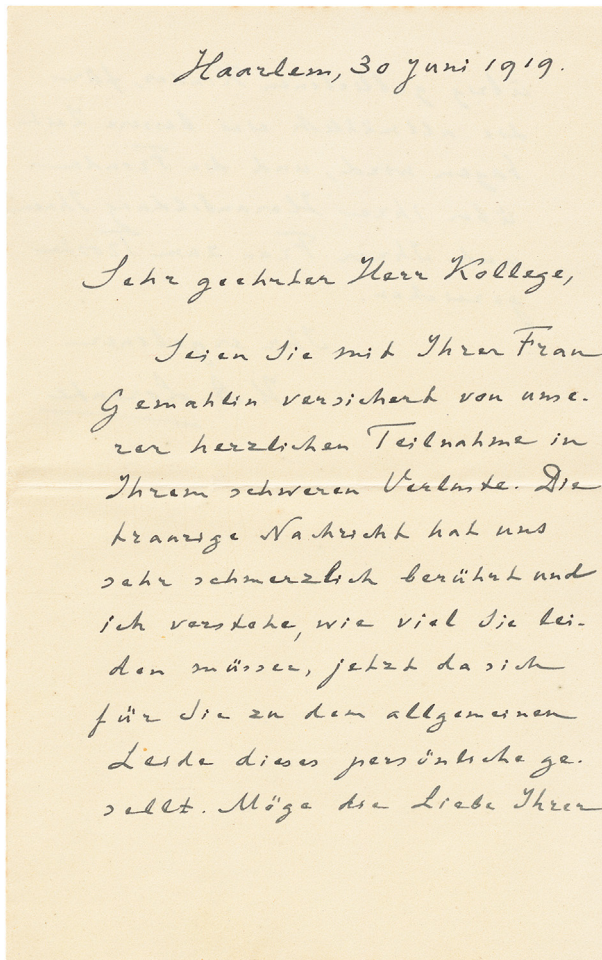 Haarlem, 30 Juni 1919.
Sehr geehrter Herr Kollege,
Seien Sie mit Ihrer Frau
Gemahlin versichert von unse-
rer herzlichen Teilnahme in
Ihrem schweren Verluste. Die
traurige Nachricht hat uns
sehr schmerzlich berührt und
ich verstehe, wie viel Sie lei-
den müssen, jetzt da sich
für Sie zu dem allgemeinen
Leide dieses persönliche ge-
sellt. Möge die Liebe Ihrer